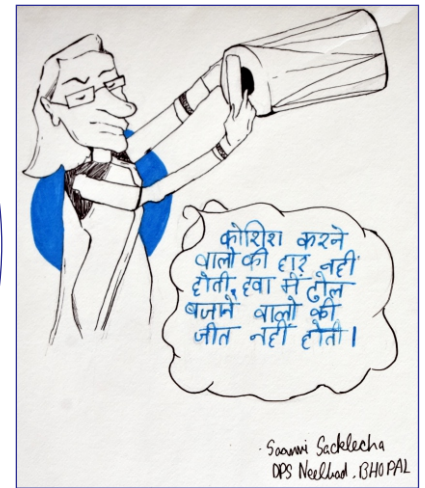 कोशिश करने
वालो की हार नहीं
होती, हवा में ढोल
बजाने वालो की
जीत नहीं होती।
Sacklecha
DPS Neelbad, BHOPAL